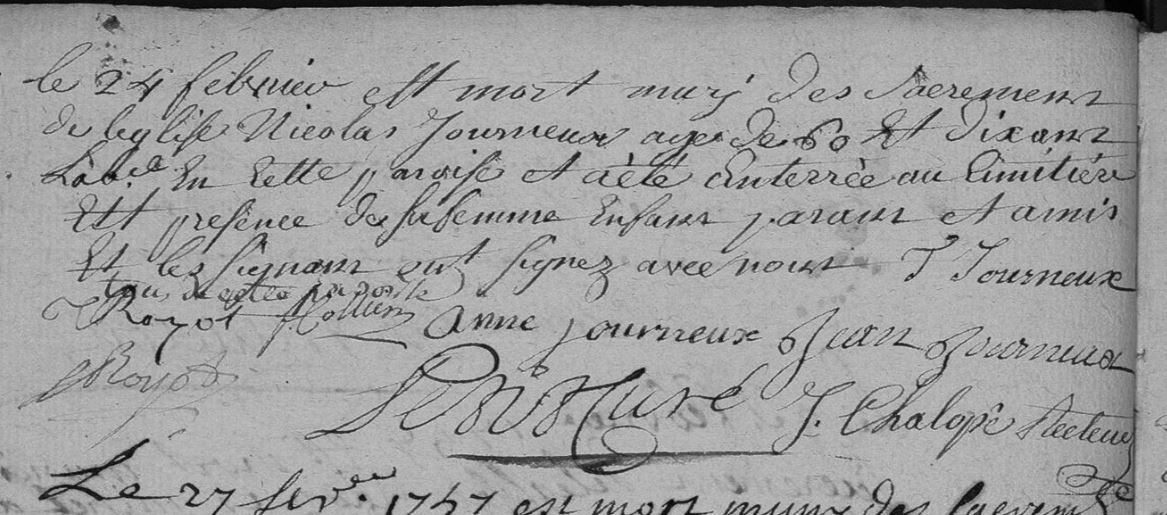 le 24 febvriev est mort muny des sacremens
de leglise Nicolas Journeux agé de 60 Et dix ans
Lab.^r En Cette paroise et a été Enterrèe au Cimitière
Ett presence de sa femme Enfans parans et amis
Et les signans ont signez avec nous T Journeux
tous de cette paroisse
Royot Anne journeux Jean Journeux
Royot Curé J. Chalopè Recteur
Le 27 fev.^er 1747 est mort muny des sacrem^ts